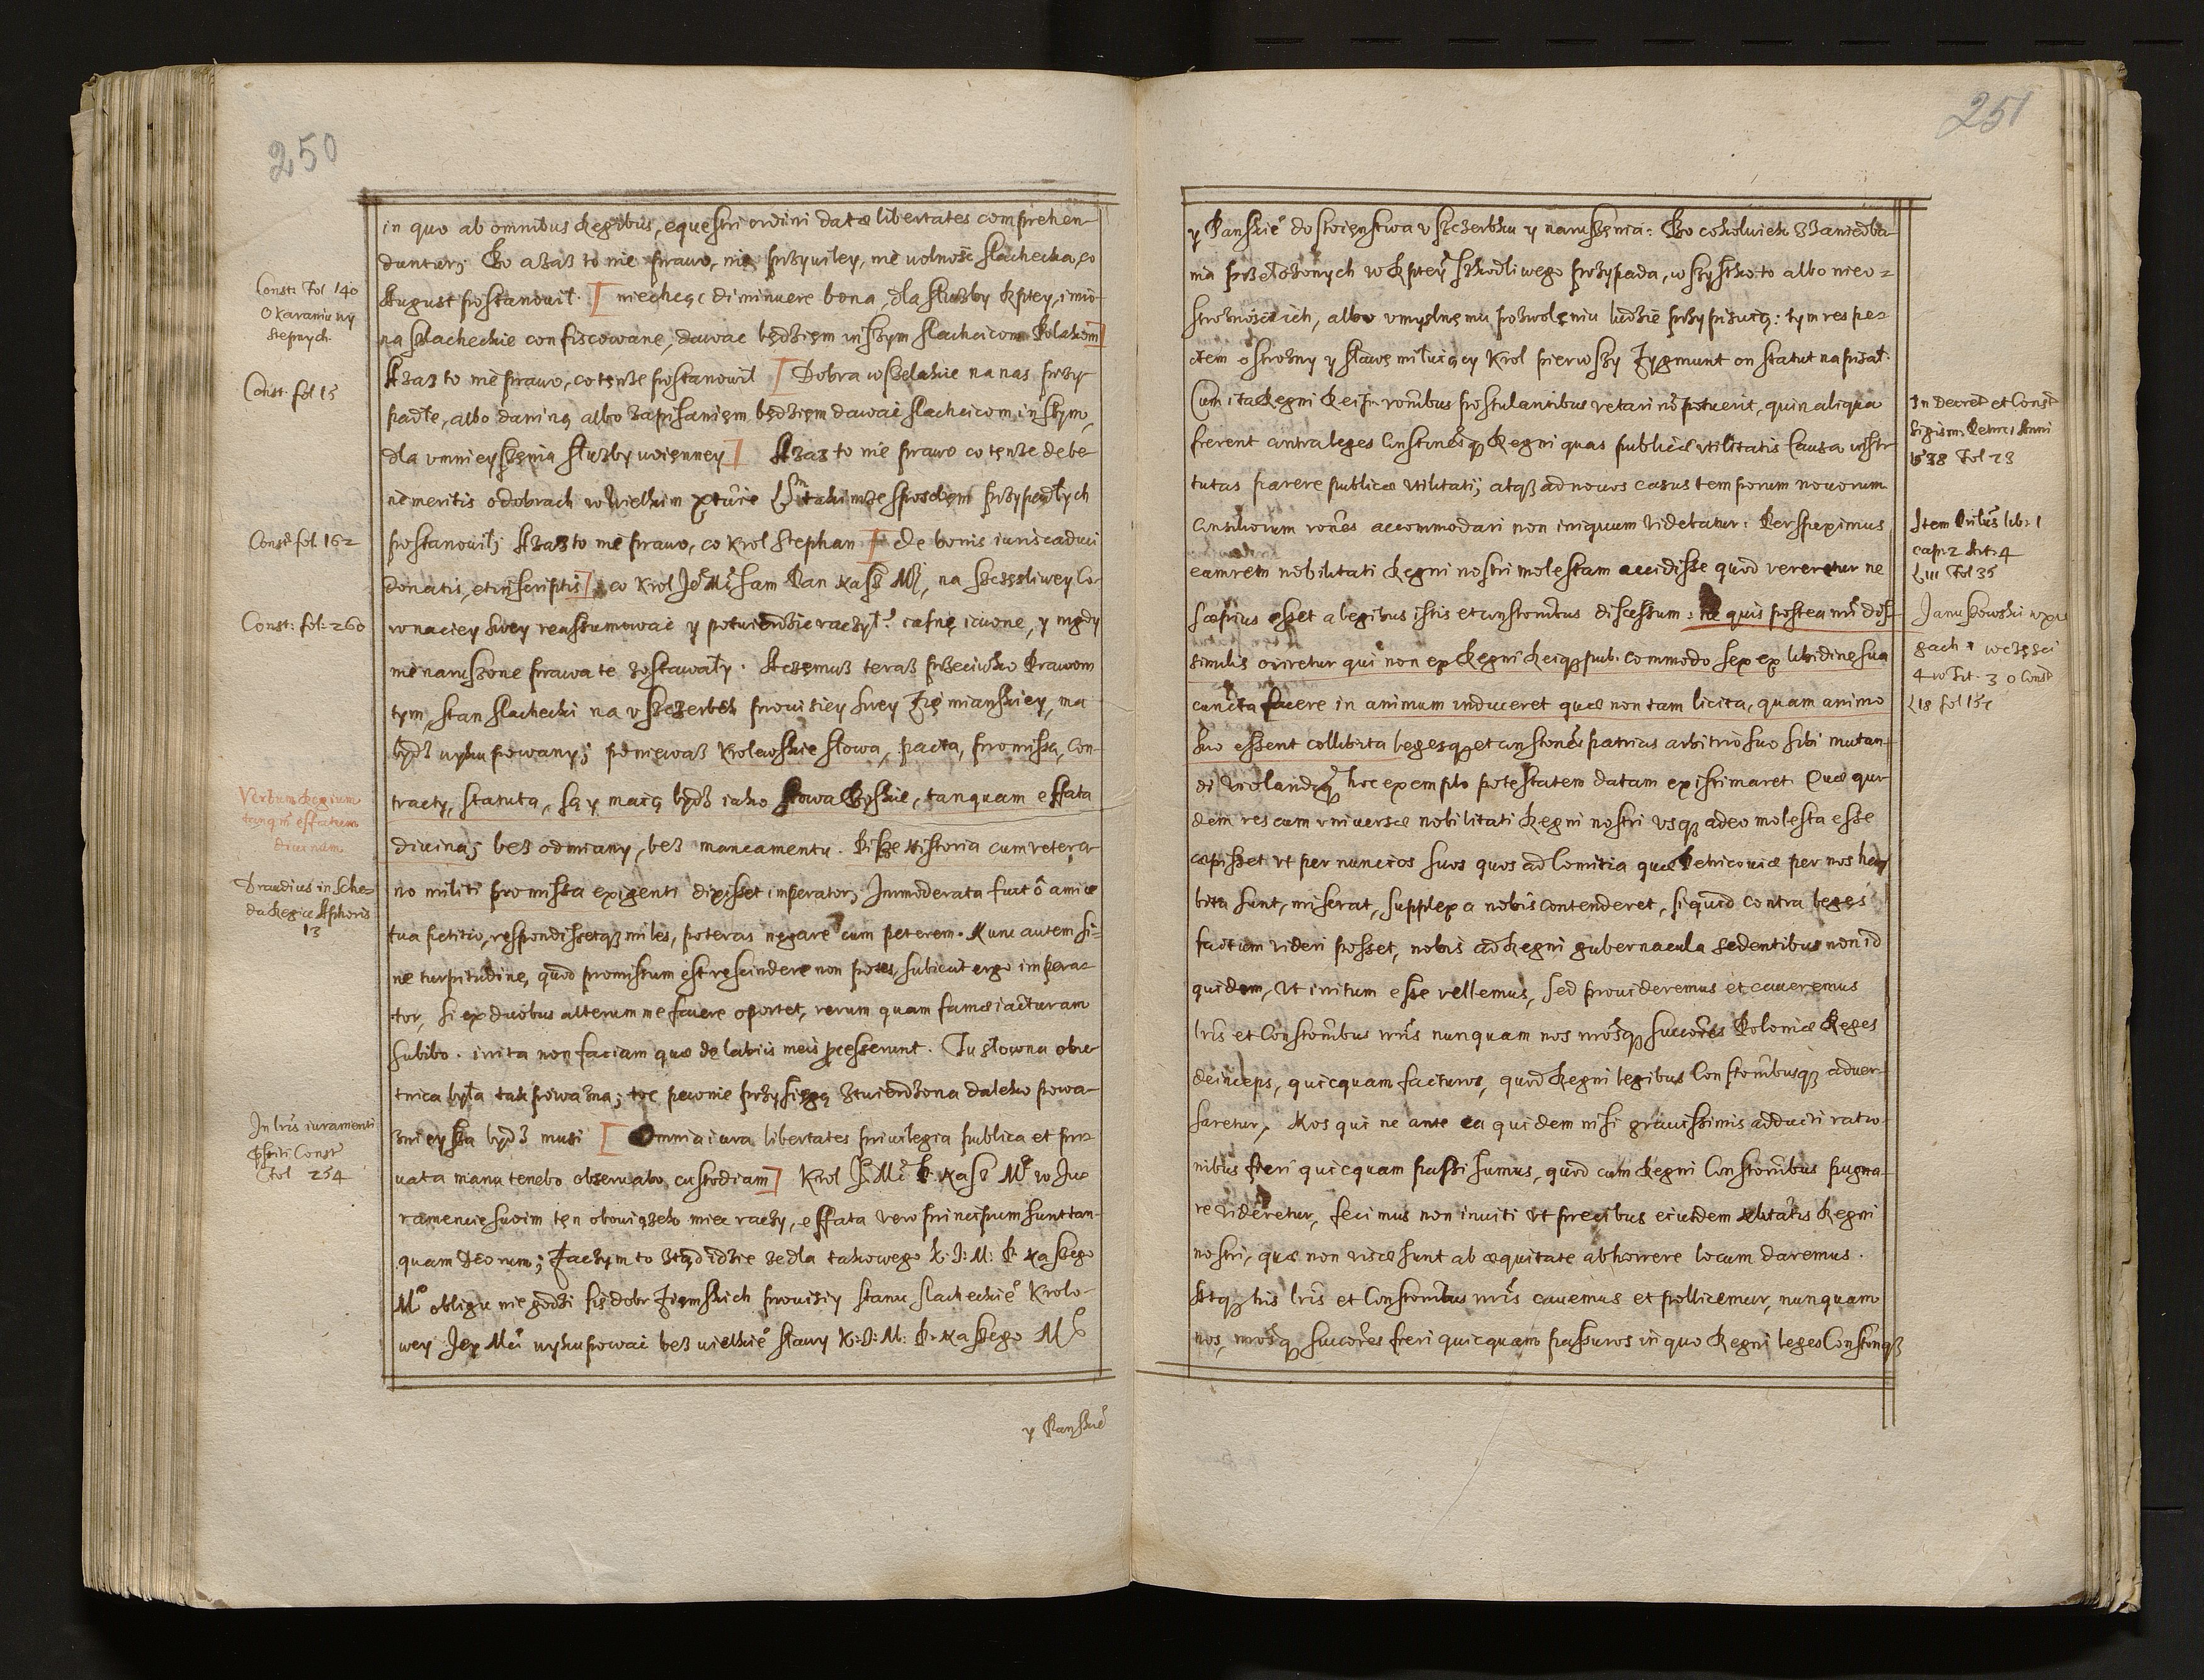 250
in quo ab omnibus Regibus, equestri ordini datæ libertates comprehen-
duntur; Bo azaß to nie prawo, nie przywiley, nie wolność slachecka, co
August postanowił. [ niechcąc diminuere bona, dla służby Rptey, imio-
na szlacheckie confiscowane, dawac będziem inszym slachcicom Polakom]
Azaz to nie prawo, co tenże postanowił [ Dobra wszelakie na nas przy-
padłe, albo daniną albo zapisaniem będziem dawać slachcicom inszym,
dla umnieyszenia służby woienney] Azaz to nie prawo co tenże de be-
ne meritis o dobrach w Wielkim takimże sposobem przypadłych
postanowił; Azaz to nie prawo, co Krol Stephan [ de bonis iuris caduci
donatis, et inscriptis] co Krol Je° Mć sam Pan Nasz Mł, na szczęsliwey Co-
ronaciey swey reassumować y potwierdzić raczył: całe iawne, y nigdy
nie naruszone prawa te zostawały. Aczemuß teraß przeciwko Prawom
tym, stan slachecki na uszczerbek prowisiey swey Ziemianskiey, ma
bydź wykupowany; ponieważ Krolewskie słowa, pacta, promissa, con-
tracty, statuta, są y maią bydź iako słowa Boskie, tanquam effata
divina; beß odmiany, beß mancamentu. Pisze Historia cum vetera-
no militi promissa exigenti dixisset imperator, Immoderata fuit ô amice
tua petitio, respondissetq3 miles, poteras negare cum peterem. Nunc autem si-
ne turpitudine, quod promissum est rescindere non potes, subiecit ergo impera-
tor, si ex duobus alterum me facere oportet, rerum quam famæ iacturam
subibo. irrita non faciam quæ de labiis meis processerunt. Tu słowna obie-
tnica była tak poważna; toć pewnie przysięgą ztwierdzona daleko powa-
znieysza bydź musi [ Omnia iura libertates privilegia publica et pri-
vata manu tenebo observabo custodiam] Krol J° Mć P. Nasz M° w Iu-
ramencie swoim ten obowiązek mieć raczy, effata vero principum sunt tan-
quam Deorum; Zaczym to ztąd idzie ze dla takowego K: J: M: P. Naszego
M° obligu nie godzi się dobr Ziemskich prowisiy stanu slacheckie° Krolo-
wey Jey Mći wykupować beß wielkie° sławy K: J: M: P. Naszego M°
y Panskie°
Const: Fol 140
O karaniu wy
stepnych.
Const. fol 15
Const fol. 162
Const: fol: 260
Verbum Regium
tanqm effatum
divinum
Draudius in Sche-
da Regia Aphoris
13
In lris iuramenti
Const
Fol 254
251
y Panskie° dostoienstwa uszczerbku y naruszenia: Bo cokolwiek z zaniedba-
nia przełożonych w Rptey szkodliwego przypada, wszystko to albo nieo-
strożności ich, albo umyslnemu pozwoleniu ludzie przypisuią: tym respe-
ctem ostrożny y sławę miłuiący Krol pierwszy Zygmunt on statut napisał.
Cum ita Regni Rei rombus postulantibus vetari nō potuerit, quin aliqua
fierent contra leges Constonesq3 Regni quas publicæ utilitatis causa insti-
tutas parere publicæ utilitati; atq3 ad novos casus temporum novorum
Consiliorum rones accommodari non iniquum videbatur: Perspeximus
eam rem nobilitati Regni nostri molestam accidisse quod vereretur ne
sæpius esset a legibus istis et constombus discessum: ne quis postea nri dis-
similis oriretur qui non ex Regni Reiq3 pub. commodo sex ex libidine sua
cuncta facere in animum induceret quæ non tam licita, quam animo
suo essent collibita legesq3 et constones patrias arbitrio suo sibi mutan-
di violandiq3 hoc exemplo potestatem datam existimaret Quæ qui-
dem res cum universæ nobilitati Regni nostri usq3 adeo molesta esse
cæpisset ut per nuncios suos quos ad Comitia quæ Petricoviæ per nos ha-
bita sunt, miserat, supplex a nobis contenderet, siquid contra leges
factum videri posset, nobis ad Regni gubernacula sedentibus non id
quidem, ut irritum esse vellemus, sed provideremus et caveremus
lris et Constombus nris nunquam nos nrosq3 succores Poloniæ Reges
deinceps, quicquam facturos, quod Regni legibus Constombusq3 adver-
saretur, Nos qui ne ante ea quidem nisi gravissimis adducti ratio-
nibus fieri quicquam passi sumus, quod cum Regni Constombus pugna-
re videretur, fecimus non inviti ut precibus eiusdem nobilitatis Regni
nostri, quæ non visæ sunt ab æquitate abhorrere locum daremus.
Atq3 his lris et Constombus nris cavemus et pollicemur, nunquam
nos, nrosq3 succores fieri quicquam passuros in quo Regni leges Constonesq3
In Decret et Const
Sigism: Petric, Anni
1538 Fol 23
Item lib: 1
cap: 2 Art: 4
L III Fol 35
Januszowski w xię
gach w częsci
4 w Tit. 3 o Const
L 18 fol 15